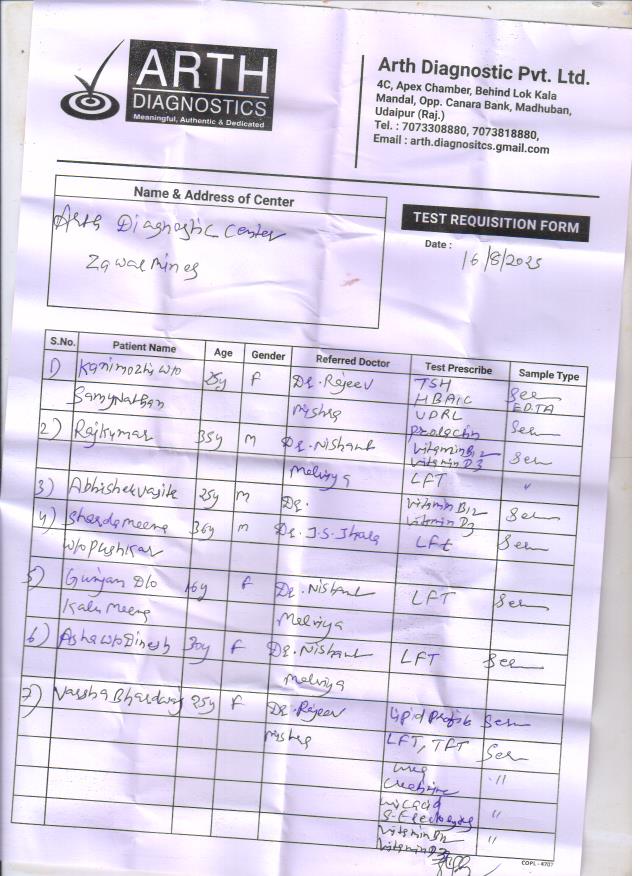 ARTH
DIAGNOSTICS
Meaningful, Authentic & Dedicated
Arth Diagnostic Pvt. Ltd.
4C, Apex Chamber, Behind Lok Kala
Mandal, Opp. Canara Bank, Madhuban,
Udaipur (Raj.)
Tel. : 7073308880, 7073818880,
Email : arth.diagnositcs.gmail.com
Name & Address of Center
Arth Diagnostic Center
Zawar Mines
TEST REQUISITION FORM
Date : 16/8/2025
S.No. Patient Name Age Gender Referred Doctor Test Prescribe Sample Type
1) Kanimozhi w/o 25y F Dr. Rajeev TSH Ser
Samynathan Mishra HBAIC EDTA
VDRL
2) Rajkumar 35y M Dr. Nishant Prolactin Ser
Vitamin B12
Vitamin D3 Ser
Melviya LFT "
3) Abhishek 25y M Dr. Vitamin B12 Ser
Vitamin D3
4) Sharda Meena 36y M Dr. J.S. Jhala LFt Ser
w/o Pushkar
5) Gunjan D/o 16y F Dr. Nishant LFT Ser
Kalu Meena Melviya
6) Asha w/o Dinesh 30y F Dr. Nishant LFT Ser
Melviya
7) Varsha Bhardwaj 25y F Dr. Rajeev Lipid Profile Ser
Mishra LFT, TFT Ser
Urea
Creatinine "
Uric acid
S-Electrolytes "
Vitamin B12 "
Vitamin D3
COPL - 4707